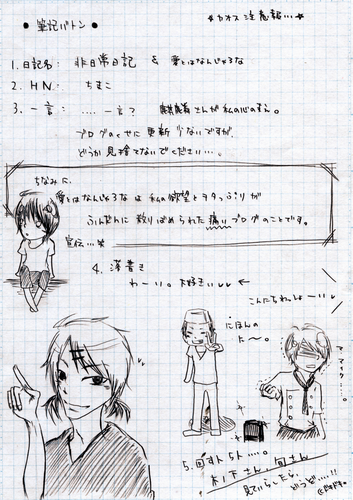 ● 筆記バトン ●
★カオス注意報...★
1. 日記名： 非日常日記 & 愛とはなんじゃろな
2. HN： ちまこ
3. 一言： ....一言？ さんが私の心の
ブログのくせに 更新 少ないですが
どうか 見捨てないでください…。
ちなみに
愛とはなんじゃろな は 私の欲望とヲタっぷりが
ふんだんに 散りばめられた痛いブログのことです。
宣伝…★
4. 落書き
わーい。大好きぃ ←
こんにちわっしょーいっ
にほんの
た〜。
マァ...。
5. 回す人
木下さん 旬さん
見ていらしたら
どうぞ…!!